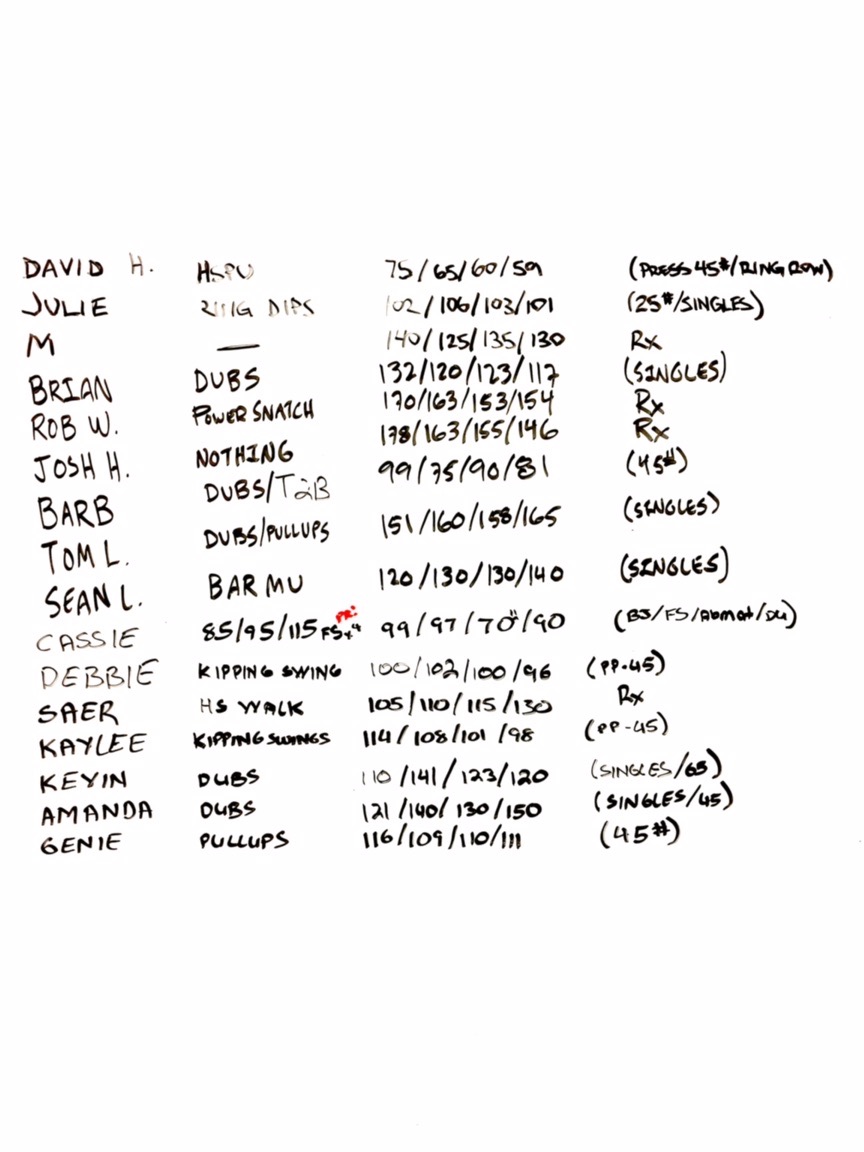 DAVID H. HSPU 75/65/60/59 (PRESS 45#/RING ROW)
JULIE RING DIPS 102/106/103/101 (25#/SINGLES)
M — 140/125/135/130 Rx
BRIAN DUBS 132/120/123/117 (SINGLES)
ROB W. POWER SNATCH 170/163/153/154 Rx
JOSH H. NOTHING 178/163/155/146 Rx
BARB DUBS/T2B 99/75/90/81 (45#)
TOM L. DUBS/PULLUPS 151/160/158/165 (SINGLES)
SEAN L. BAR MU 120/130/130/140 (SINGLES)
CASSIE 85/95/115 FSx4 PR! 99/97/70#/90 (BJ/FS/Abmat/DU)
DEBBIE KIPPING SWING 100/102/100/96 (PP-45)
SAER HS WALK 105/110/115/130 Rx
KAYLEE KIPPING SWINGS 114/108/101/98 (PP-45)
KEVIN DUBS 110/141/123/120 (SINGLES/65)
AMANDA DUBS 121/140/130/150 (SINGLES/45)
GENIE PULLUPS 116/109/110/111 (45#)